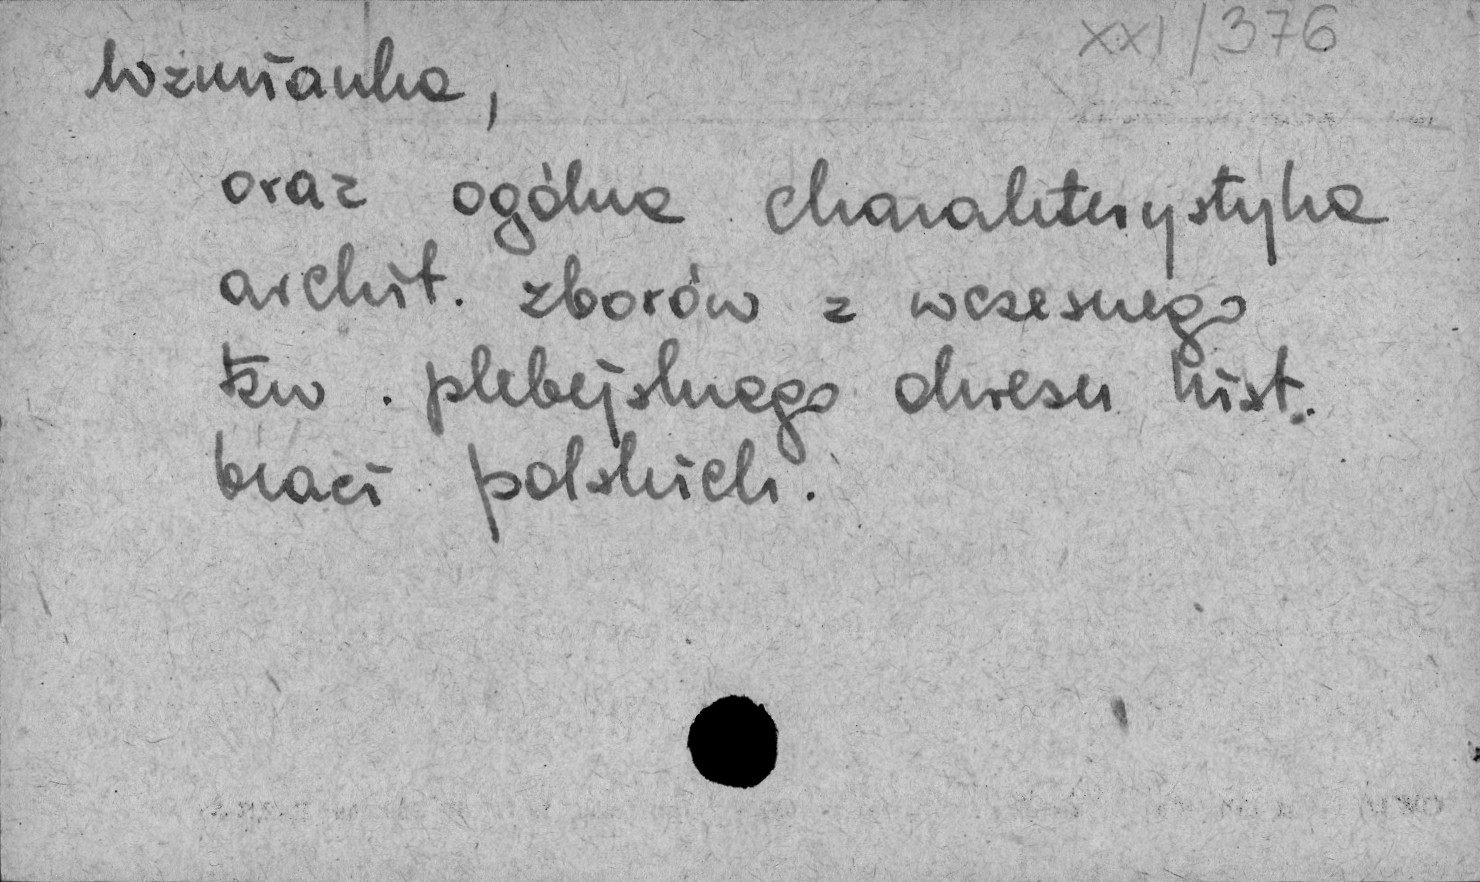 XXI/376
Wzmianka,
oraz ogólna charakterystyka
archit. zborów z wczesnego
tzw. plebejskiego okresu hist.
braci polskich.